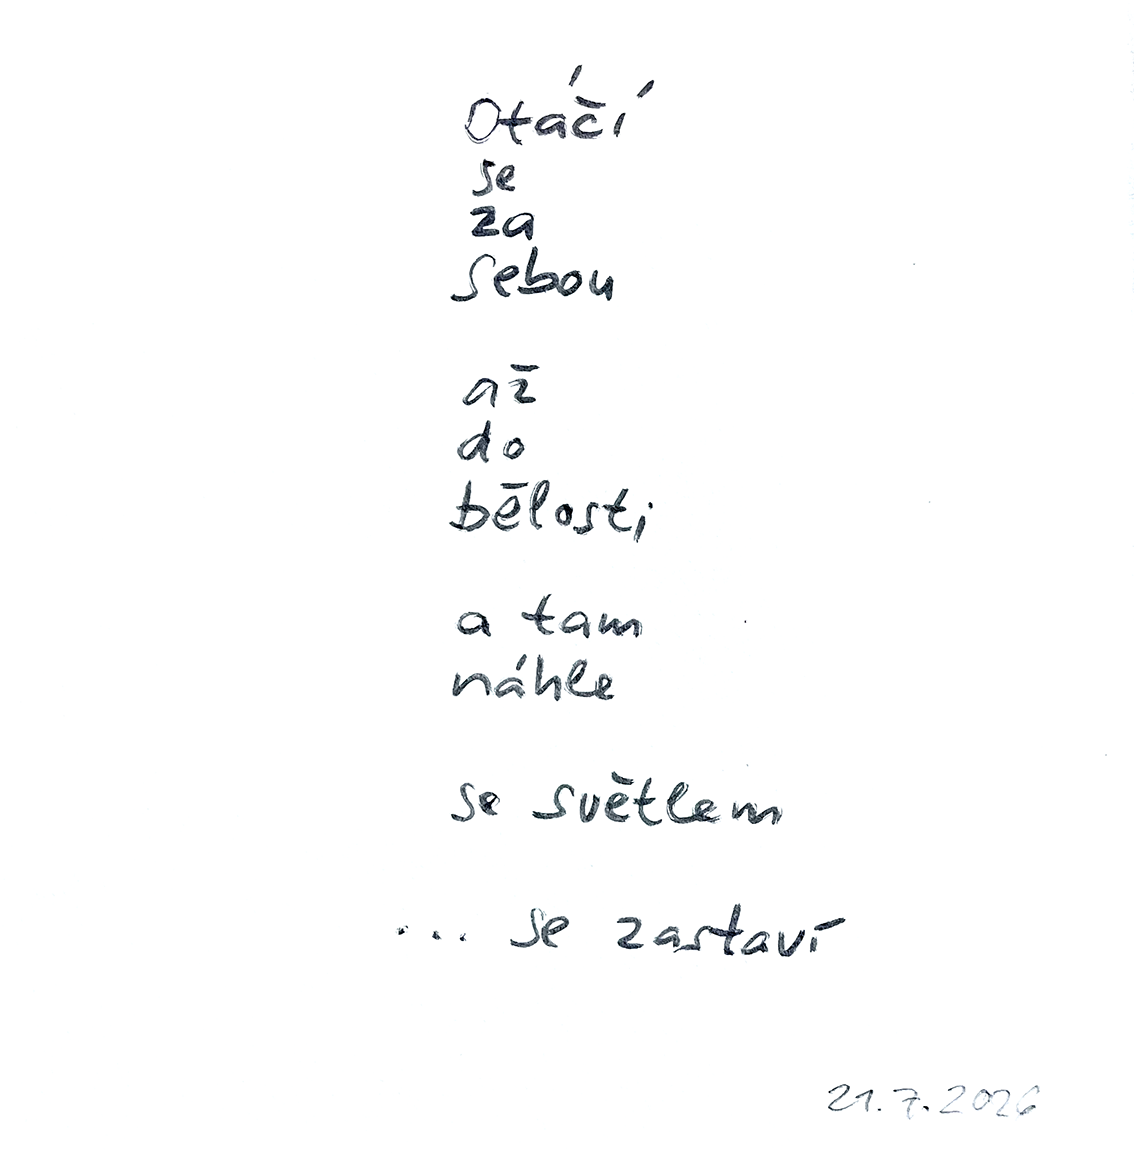 Otáčí
se
za
sebou
až
do
bělosti
a tam
náhle
se světlem
... se zastaví
21.7.2026